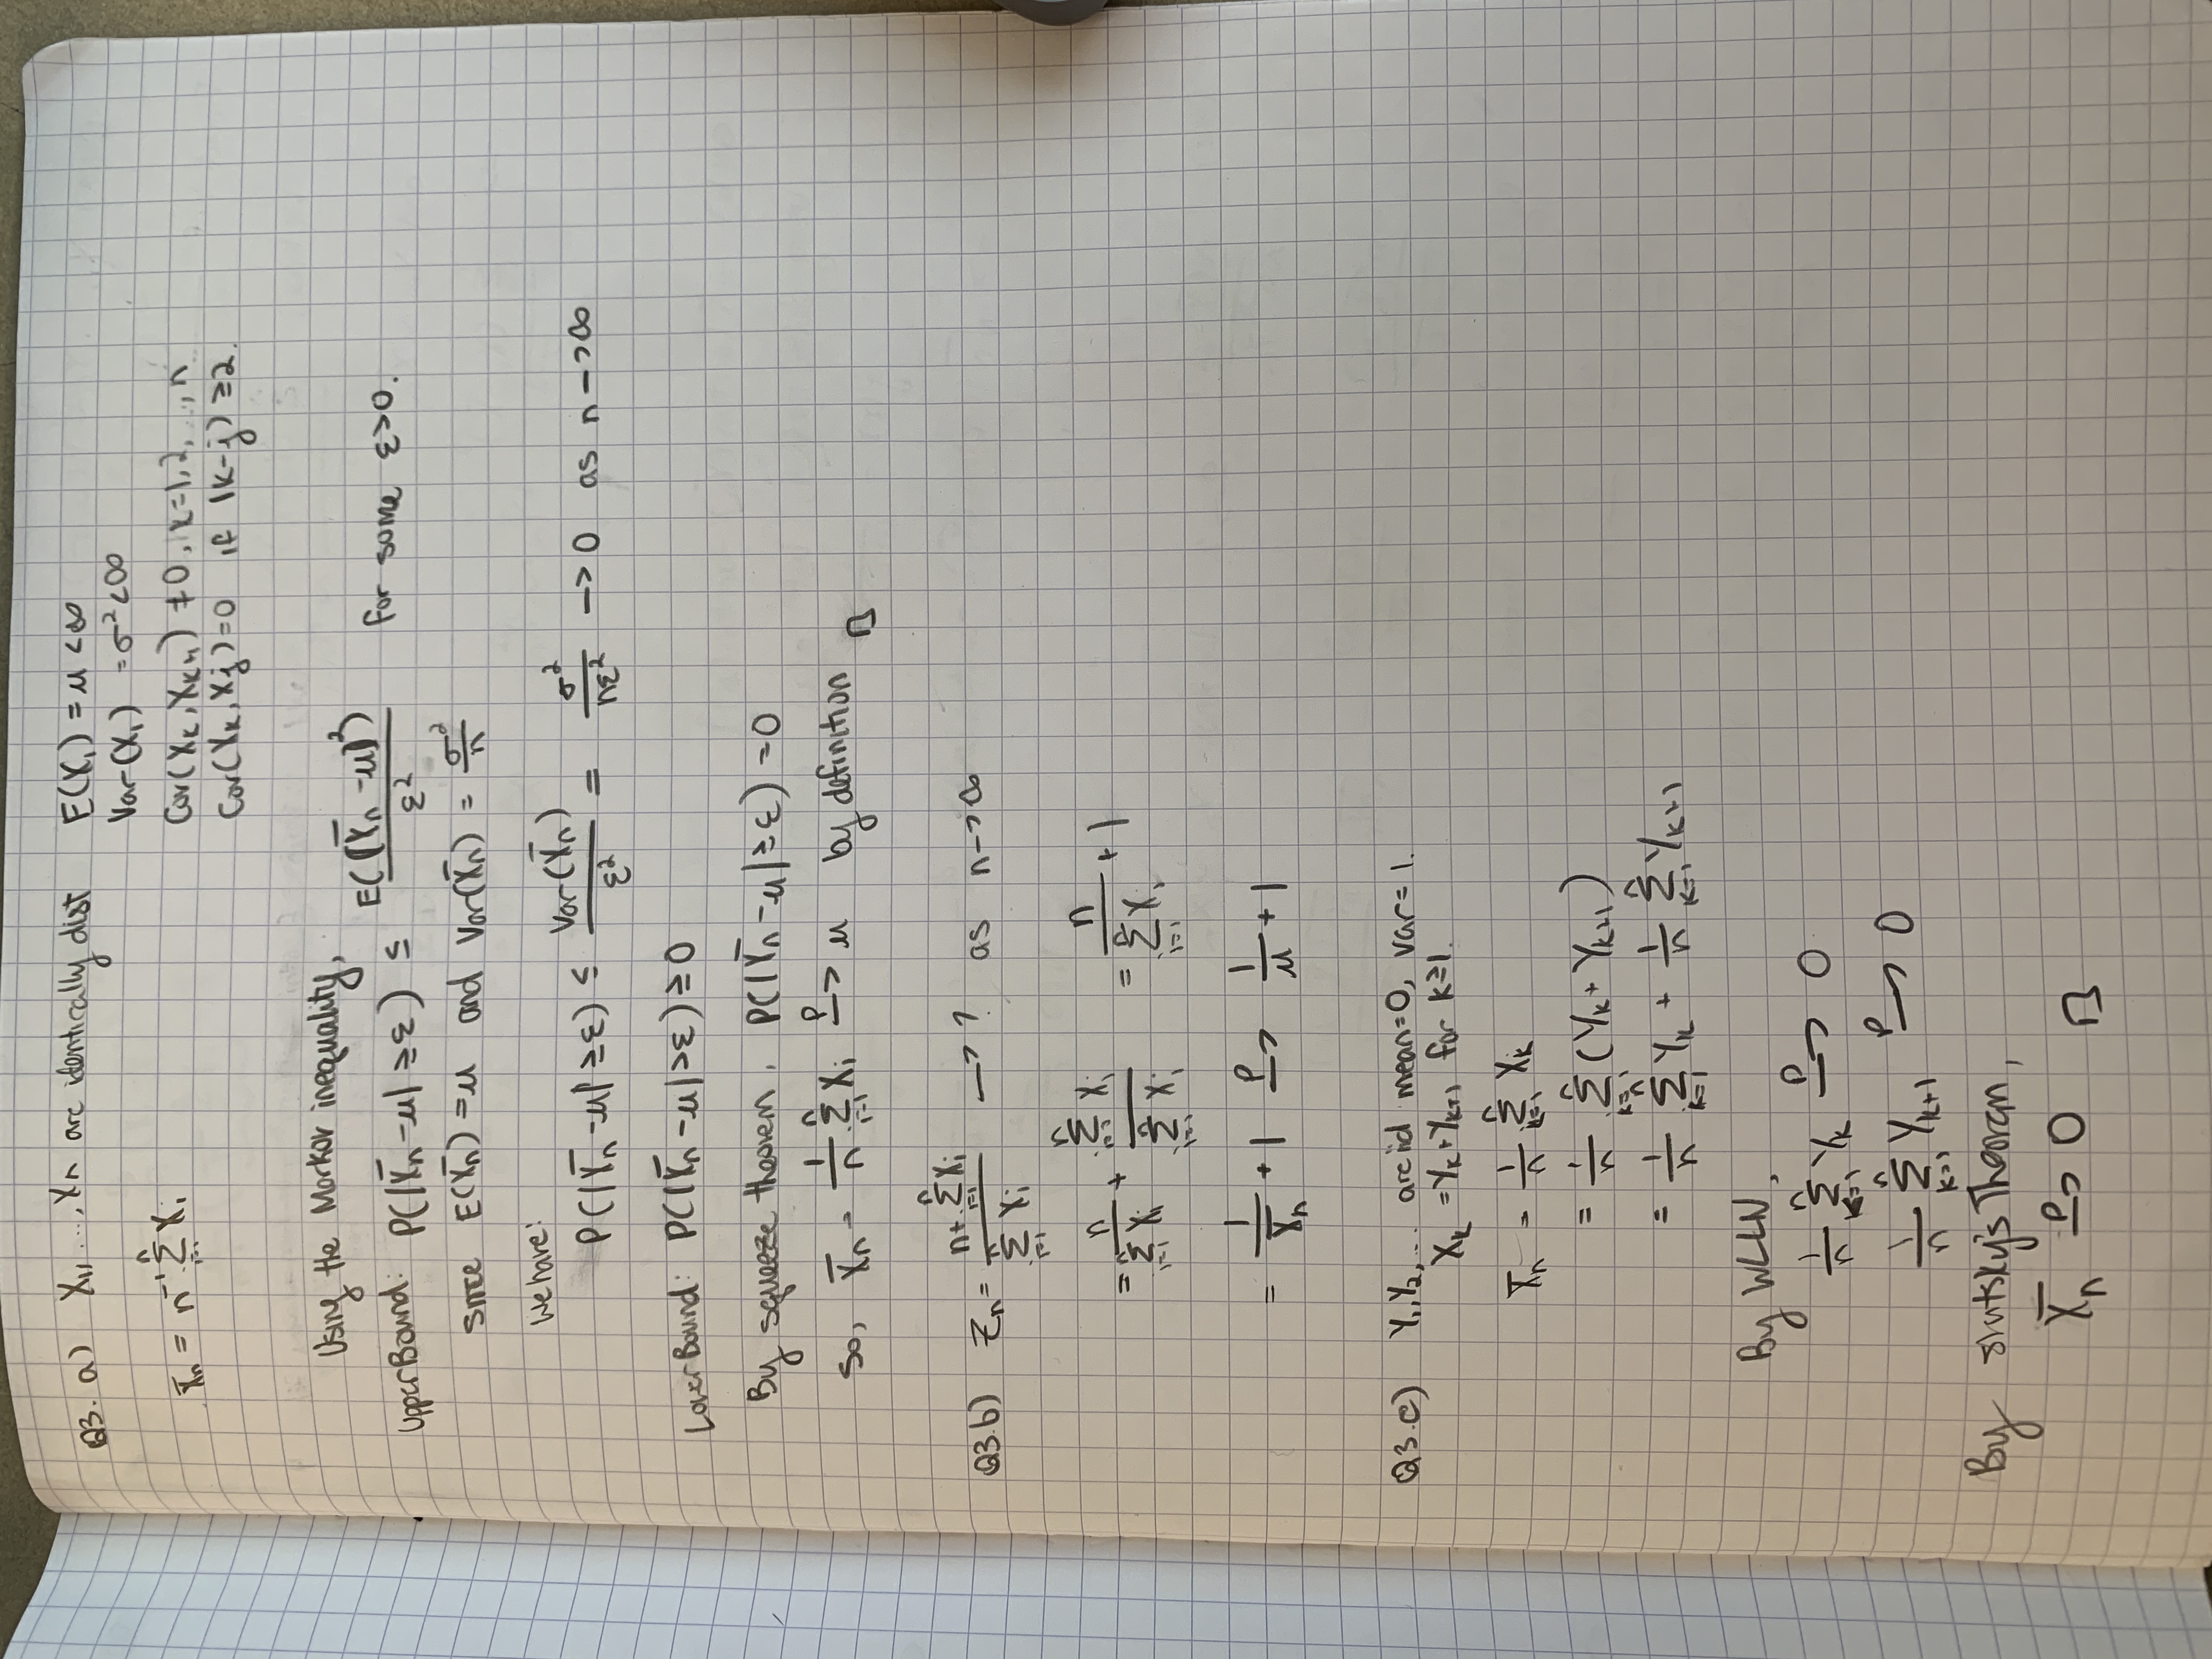 Q3. a) X₁, ..., Xn are identically dist E(X₁) = μ < ∞
Var(X₁) = σ² < ∞
X̄n = n⁻¹ Σ_{i=1}^{n} Xi Cov(Xk, Xk+1) ≠ 0, k=1,2,...,n
Cov(Xk, Xj) = 0 if |k-j| ≥ 2.
Using the Markov inequality,
Upper Bound: P(|X̄n - μ| ≥ ε) ≤ E([X̄n - μ]²) / ε² for some ε>0.
since E(X̄n) = μ and Var(X̄n) = σ²/n
We have:
P(|X̄n - μ| ≥ ε) ≤ Var(X̄n) / ε² = σ² / nε² -> 0 as n -> ∞
Lower Bound: P(|X̄n - μ| > ε) ≥ 0
By squeeze theorem, P(|X̄n - μ| ≥ ε) = 0
So, X̄n = 1/n Σ_{i=1}^{n} Xi -P-> μ by definition □
Q3.b) Zn = (n + Σ_{i=1}^{n} Xi) / (Σ_{i=1}^{n} Xi) -> ? as n -> ∞
= n / (Σ_{i=1}^{n} Xi) + (Σ_{i=1}^{n} Xi) / (Σ_{i=1}^{n} Xi) = n / (Σ_{i=1}^{n} Xi) + 1
= 1/X̄n + 1 -P-> 1/μ + 1
Q3.c) Y₁, Y₂, ... are iid mean=0, var=1.
Xk = Yk + Yk+1 for k≥1.
X̄n = 1/n Σ_{k=1}^{n} Xk
= 1/n Σ_{k=1}^{n} (Yk + Yk+1)
= 1/n Σ_{k=1}^{n} Yk + 1/n Σ_{k=1}^{n} Yk+1
By WLLN,
1/n Σ_{k=1}^{n} Yk -P-> 0
1/n Σ_{k=1}^{n} Yk+1 -P-> 0
By Slutsky's Theorem,
X̄n -P-> 0 □